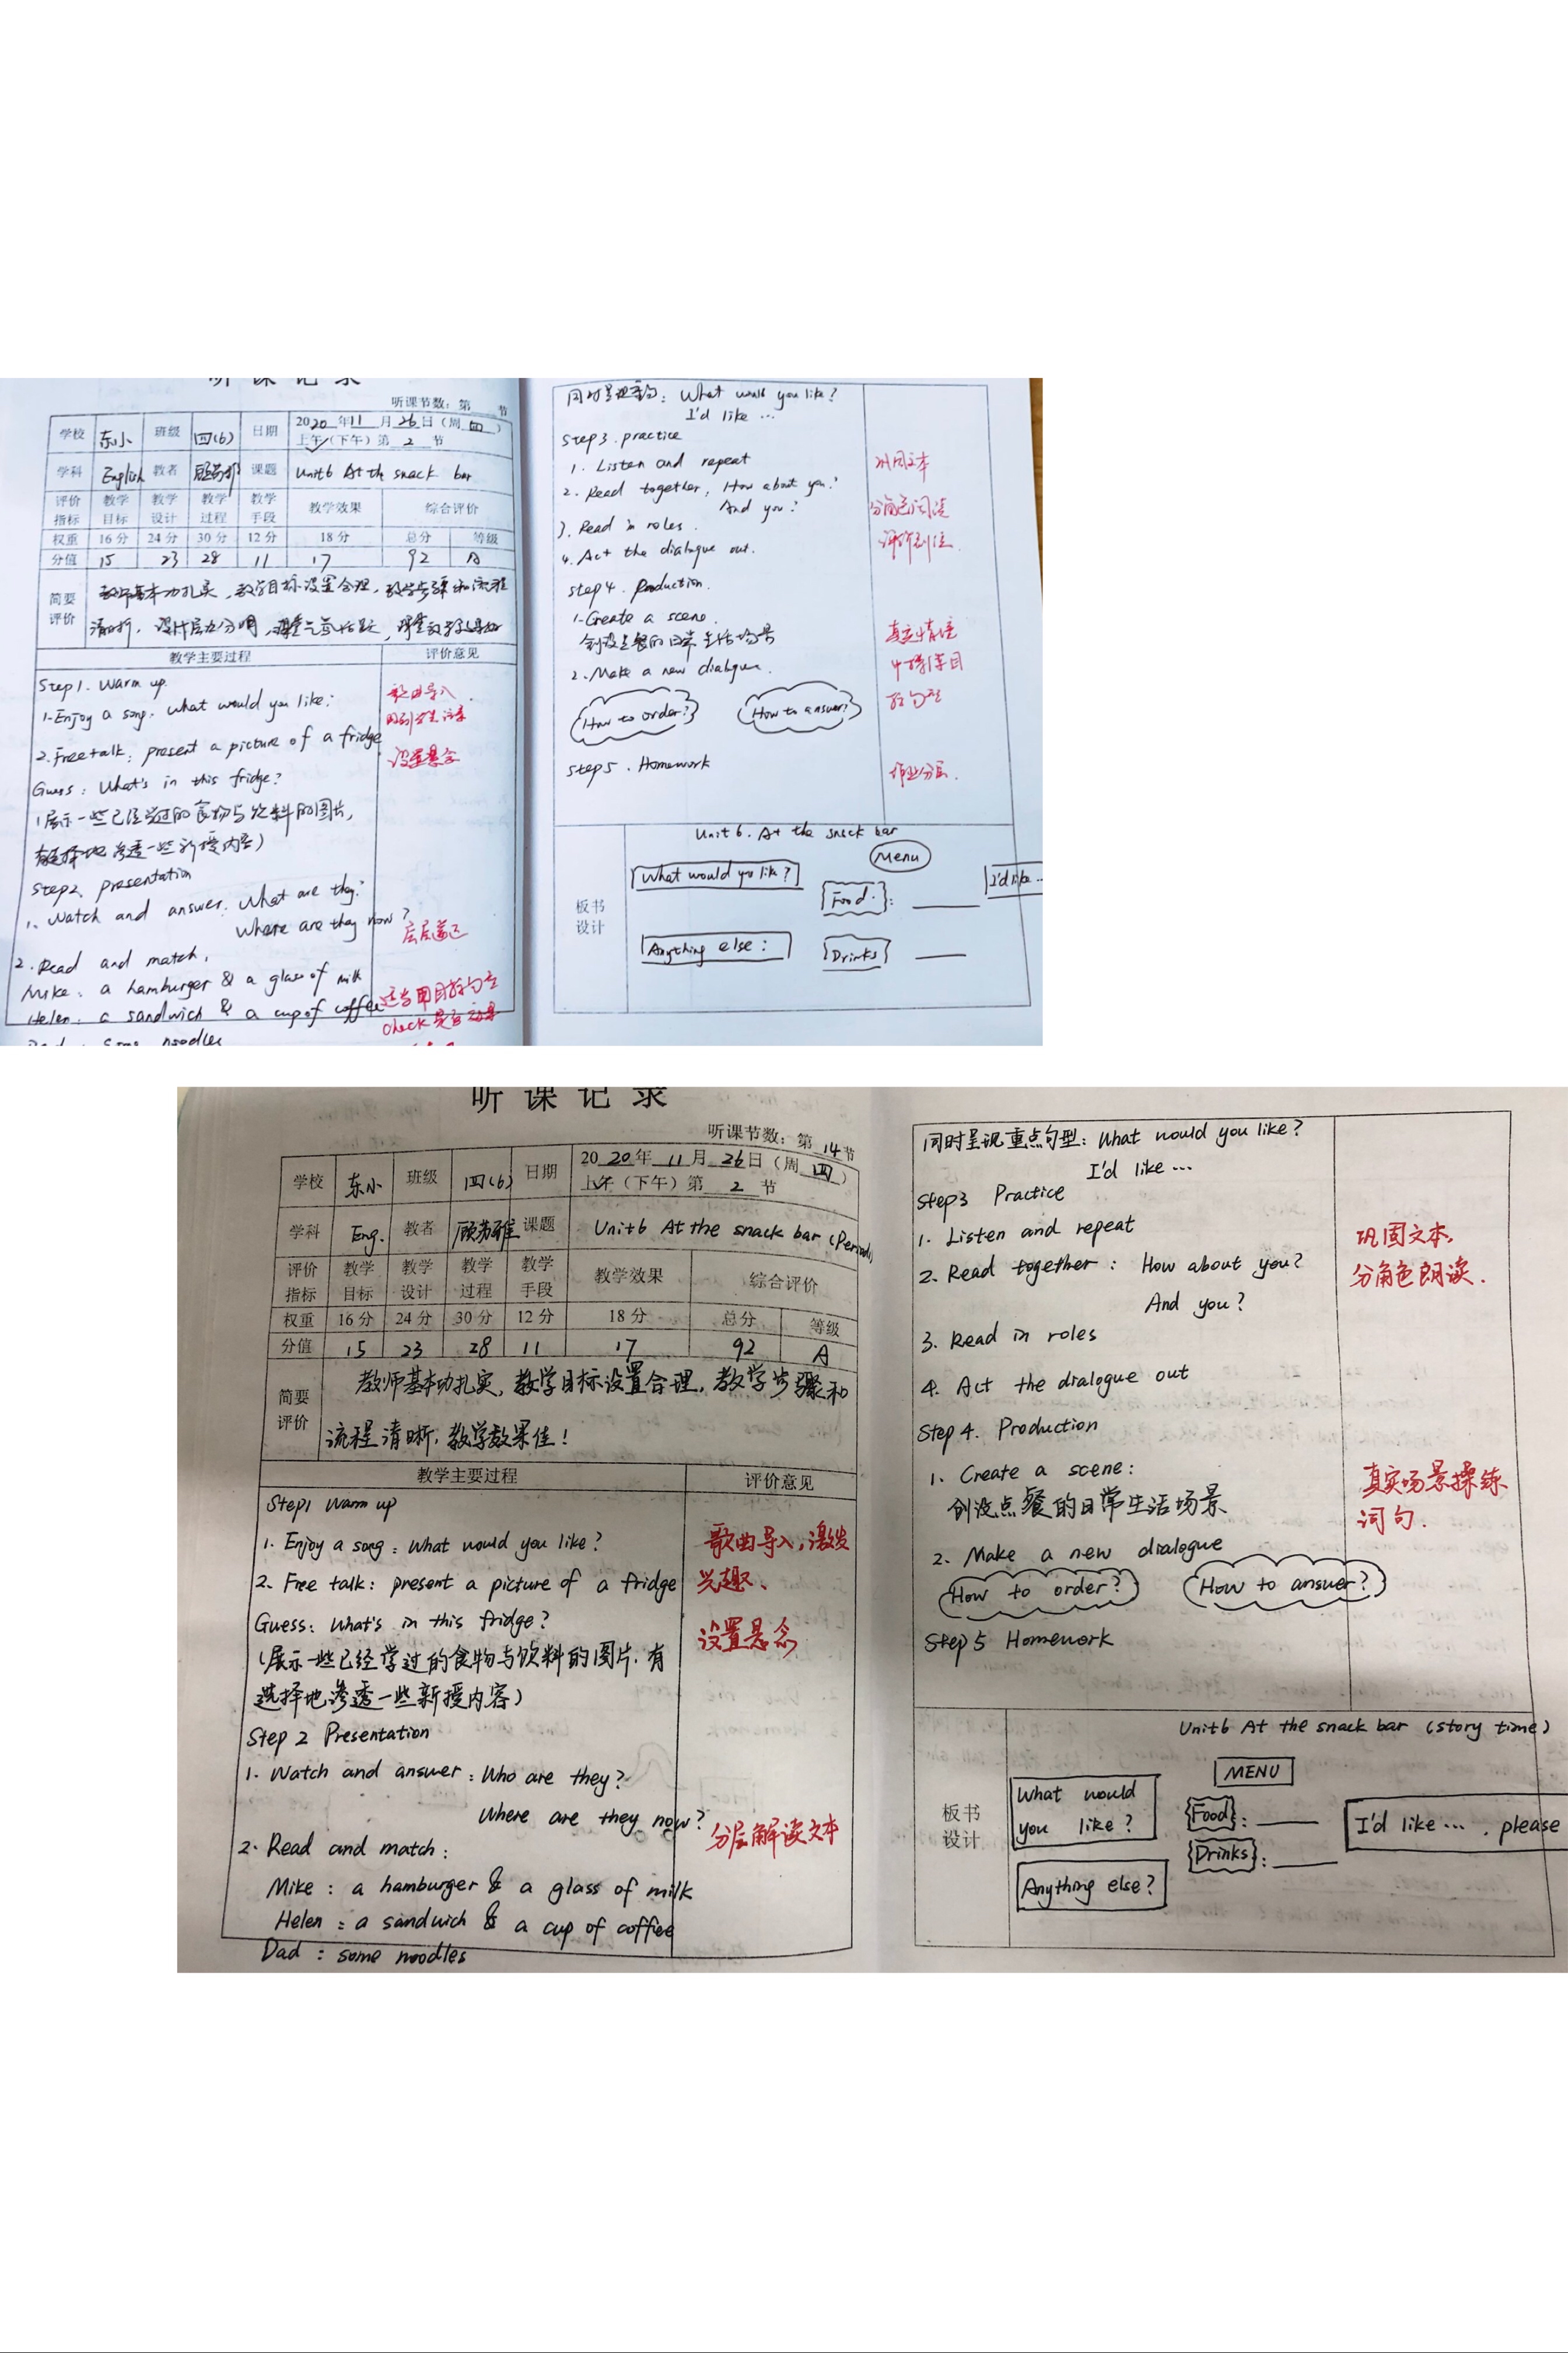 听课记录
听课节数：第 节
学校 东小 班级 四(6) 日期 2020年11月26日（周四）
上午（下午）第 2 节
学科 English 教者 课题 Unit6 At the snack bar
评价指标 教学目标 教学设计 教学过程 教学手段 教学效果 综合评价
权重 16分 24分 30分 12分 18分 总分 等级
分值 15 23 28 11 17 92 A
简要评价 教师基本功扎实，教学目标设置合理，教学步骤和流程
清晰，设计层次分明，
教学主要过程 评价意见
Step1. Warm up
1. Enjoy a song. What would you like?
歌曲导入
2. Free talk: present a picture of a fridge
设置悬念
Guess: What's in this fridge?
(展示一些已经学过的食物与饮料的图片,
有选择地渗透一些新授内容)
Step2. presentation
1. Watch and answer. What are they?
Where are they now?
层层递进
2. Read and match.
Mike: a hamburger & a glass of milk
Helen: a sandwich & a cup of coffee
适当用目标句型
check
Dad: some noodles
同时呈现 : What would you like?
I'd like ...
Step3. practice
1. Listen and repeat
巩固文本
2. Read together, How about you?
And you?
分角色
3. Read in roles.
4. Act the dialogue out.
Step4. Production.
1. Create a scene.
创设点餐的日常生活场景
真实情境
2. Make a new dialogue.
How to order? How to answer?
Step5. Homework
作业分层.
板书设计
Unit 6. At the snack bar
Menu
What would you like? Food: I'd like ...
Anything else: Drinks
听课记录
听课节数：第 14 节
学校 东小 班级 四(6) 日期 2020年11月26日（周四）
上午（下午）第 2 节
学科 Eng. 教者 顾苏雅 课题 Unit6 At the snack bar (Period
评价指标 教学目标 教学设计 教学过程 教学手段 教学效果 综合评价
权重 16分 24分 30分 12分 18分 总分 等级
分值 15 23 28 11 17 92 A
简要评价 教师基本功扎实，教学目标设置合理，教学步骤和
流程清晰，教学效果佳！
教学主要过程 评价意见
Step1 Warm up
1. Enjoy a song: What would you like?
歌曲导入，激发
2. Free talk: present a picture of a fridge
兴趣、
Guess: What's in this fridge?
设置悬念
(展示一些已经学过的食物与饮料的图片.有
选择地渗透一些新授内容)
Step 2 Presentation
1. Watch and answer: Who are they?
Where are they now?
分层解读文本
2. Read and match:
Mike: a hamburger & a glass of milk
Helen: a sandwich & a cup of coffee
Dad: some noodles
同时呈现重点句型: What would you like?
I'd like ...
Step3 Practice
1. Listen and repeat
巩固文本,
2. Read together: How about you?
分角色朗读.
And you?
3. Read in roles
4. Act the dialogue out
Step 4. Production
1. Create a scene:
真实场景操练
创设点餐的日常生活场景
词句.
2. Make a new dialogue
How to order? How to answer?
Step 5 Homework
板书设计
Unit6 At the snack bar (story time)
MENU
What would you like? Food: I'd like ... , please
Drinks:
Anything else?